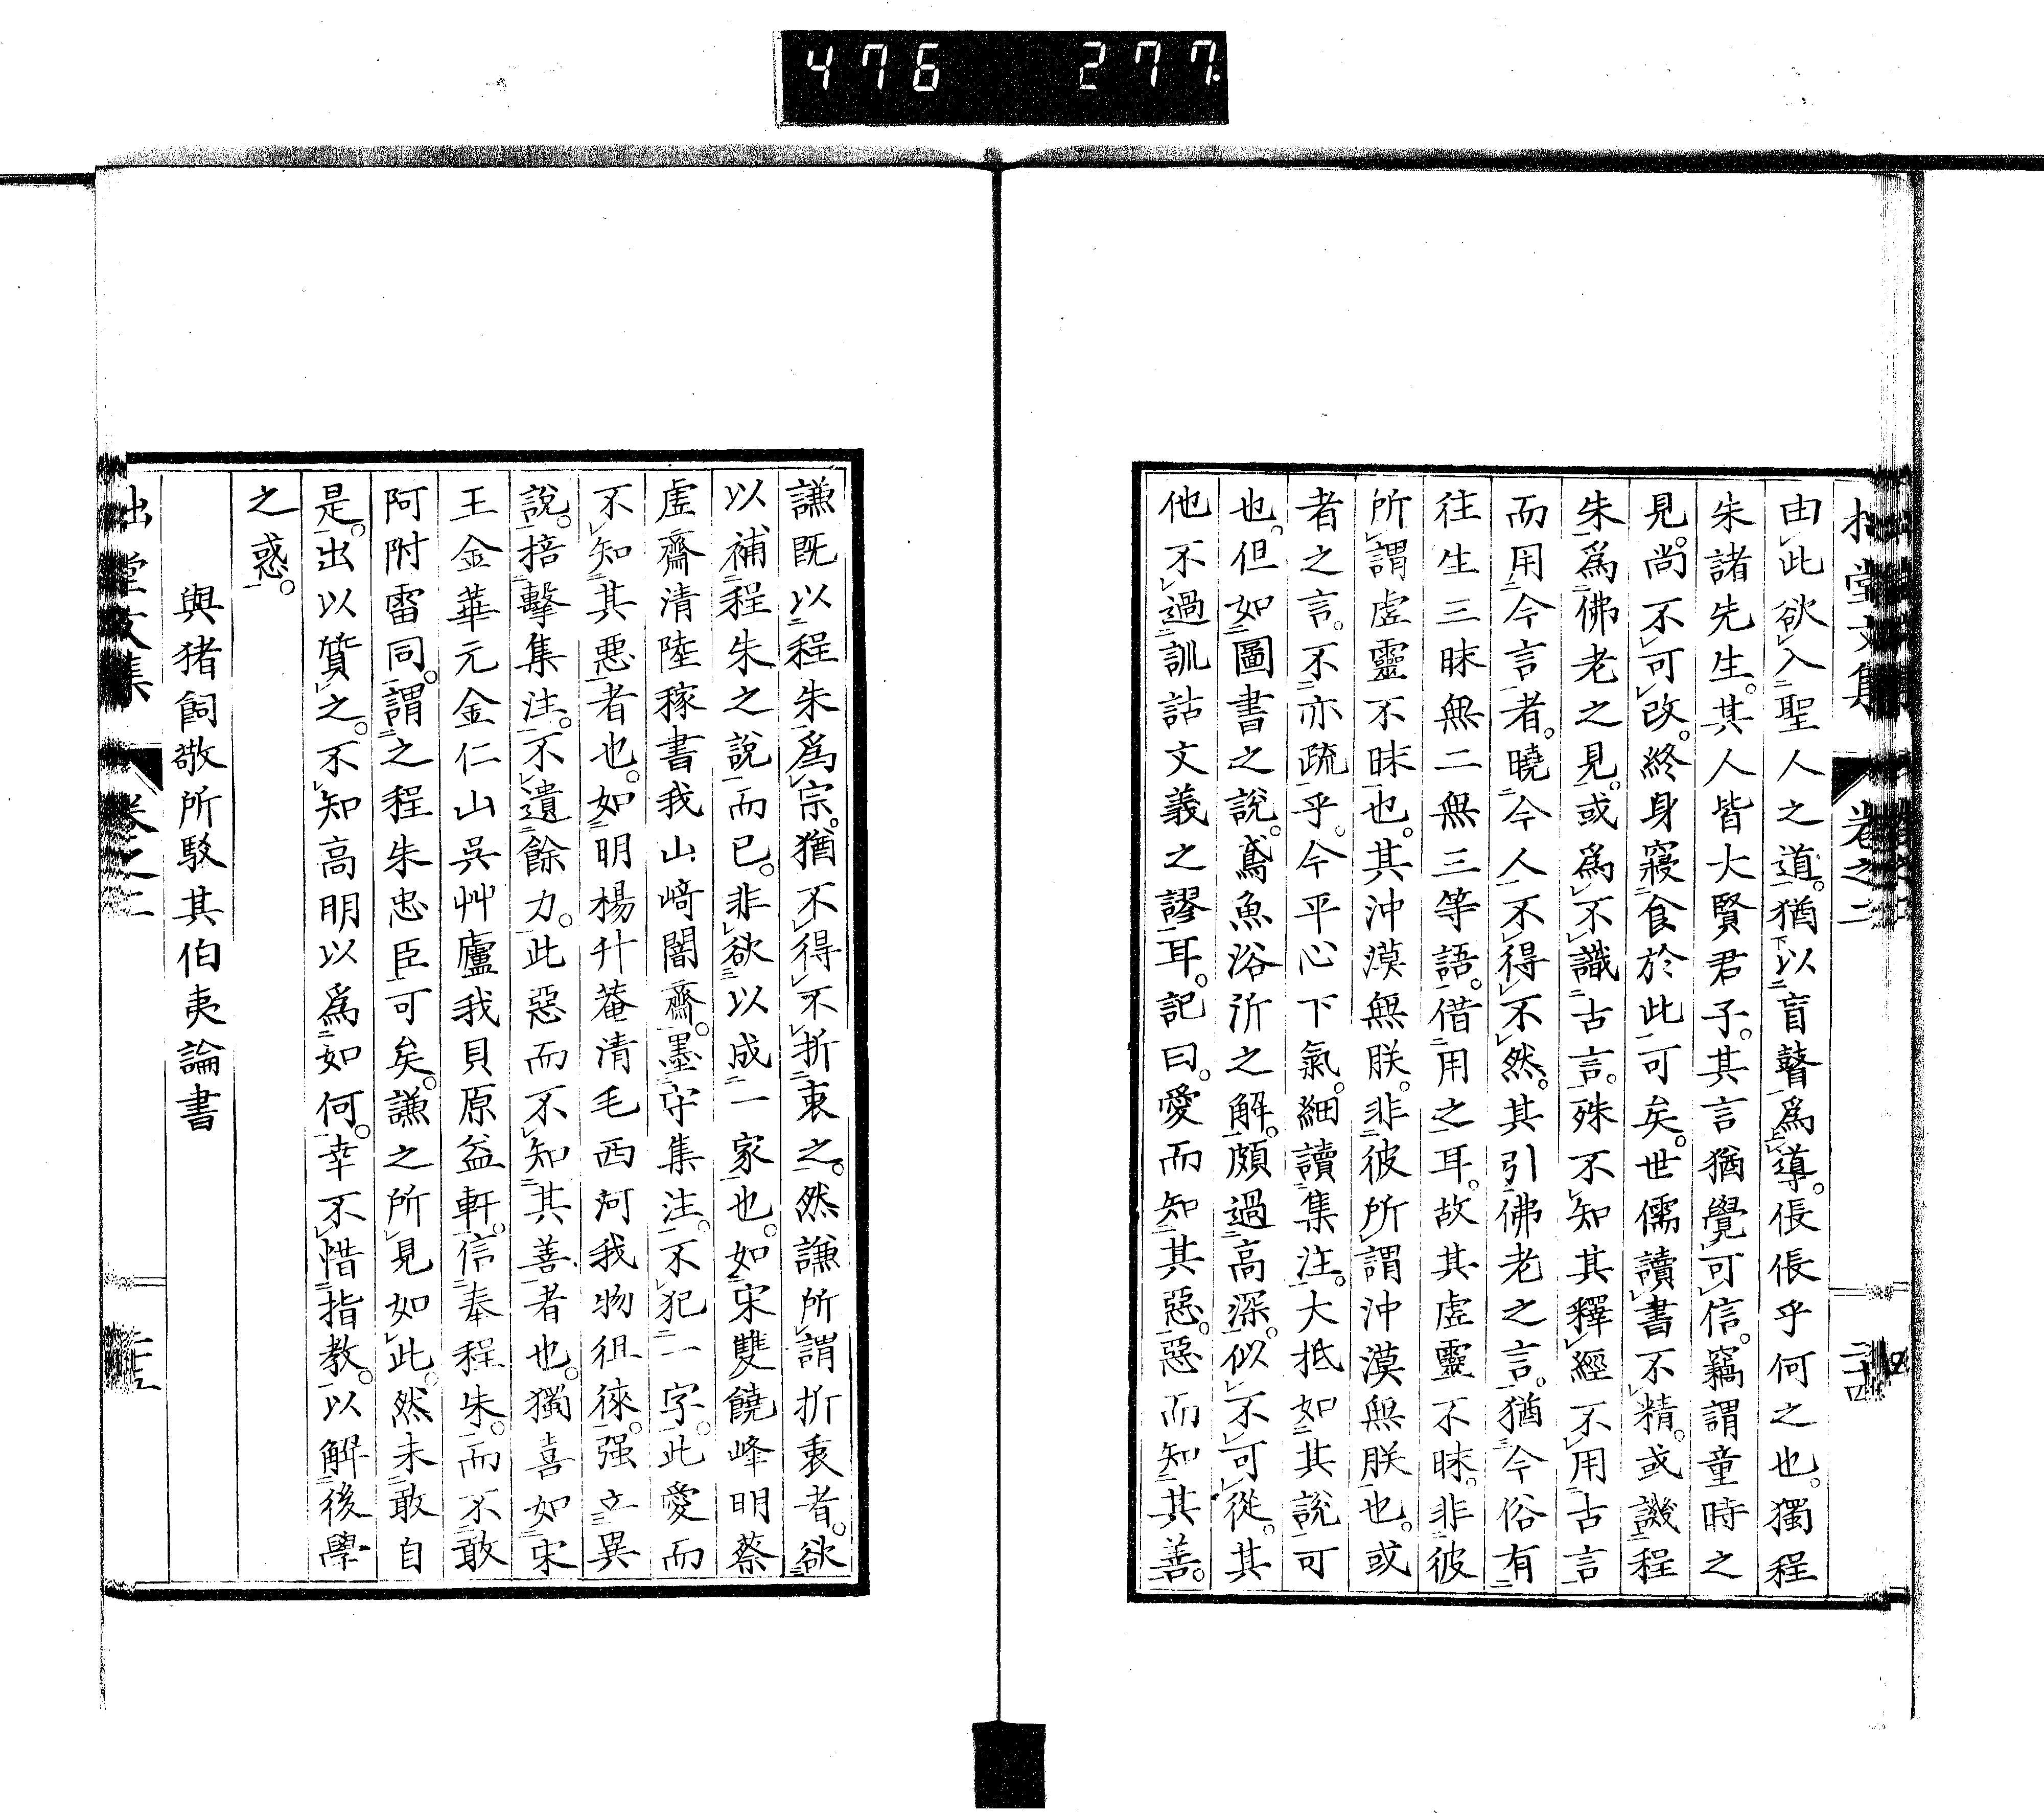 476 277
拙堂文集 卷之二 二十四
由此欲入聖人之道。猶以盲瞽爲導。倀倀乎何之也。獨程
朱諸先生。其人皆大賢君子。其言猶覺可信。竊謂童時之
見。尚不可改。終身寢食於此可矣。世儒讀書不精。或譏程
朱爲佛老之見。或爲不識古言。殊不知其釋經不用古言
而用今言者。曉今人不得不然。其引佛老之言。猶今俗有
往生三昧無二無三等語。借用之耳。故其虛靈不昧。非彼
所謂虛靈不昧也。其沖漠無朕。非彼所謂沖漠無朕也。或
者之言。不亦疏乎。今平心下氣。細讀集注。大抵如其說可
也。但如圖書之說。鳶魚浴沂之解。頗過高深。似不可從。其
他不過訓詁文義之謬耳。記曰。愛而知其惡。惡而知其善。
謙既以程朱爲宗。猶不得不折衷之。然謙所謂折衷者。欲
以補程朱之說而已。非欲以成一家也。如宋雙饒峰明蔡
虛齋清陸稼書我山﨑闇齋。墨守集注。不犯一字。此愛而
不知其悪者也。如明楊升菴清毛西河我物徂徠。强立異
說。掊擊集注。不遺餘力。此惡而不知其善者也。獨喜如宋
王金華元金仁山吳艸廬我貝原益軒。信奉程朱。而不敢
阿附雷同。謂之程朱忠臣可矣。謙之所見如此。然未敢自
是。出以質之。不知高明以爲如何。幸不惜指教。以解後學
之惑。
與猪飼敬所駁其伯夷論書
拙堂文集 卷之二